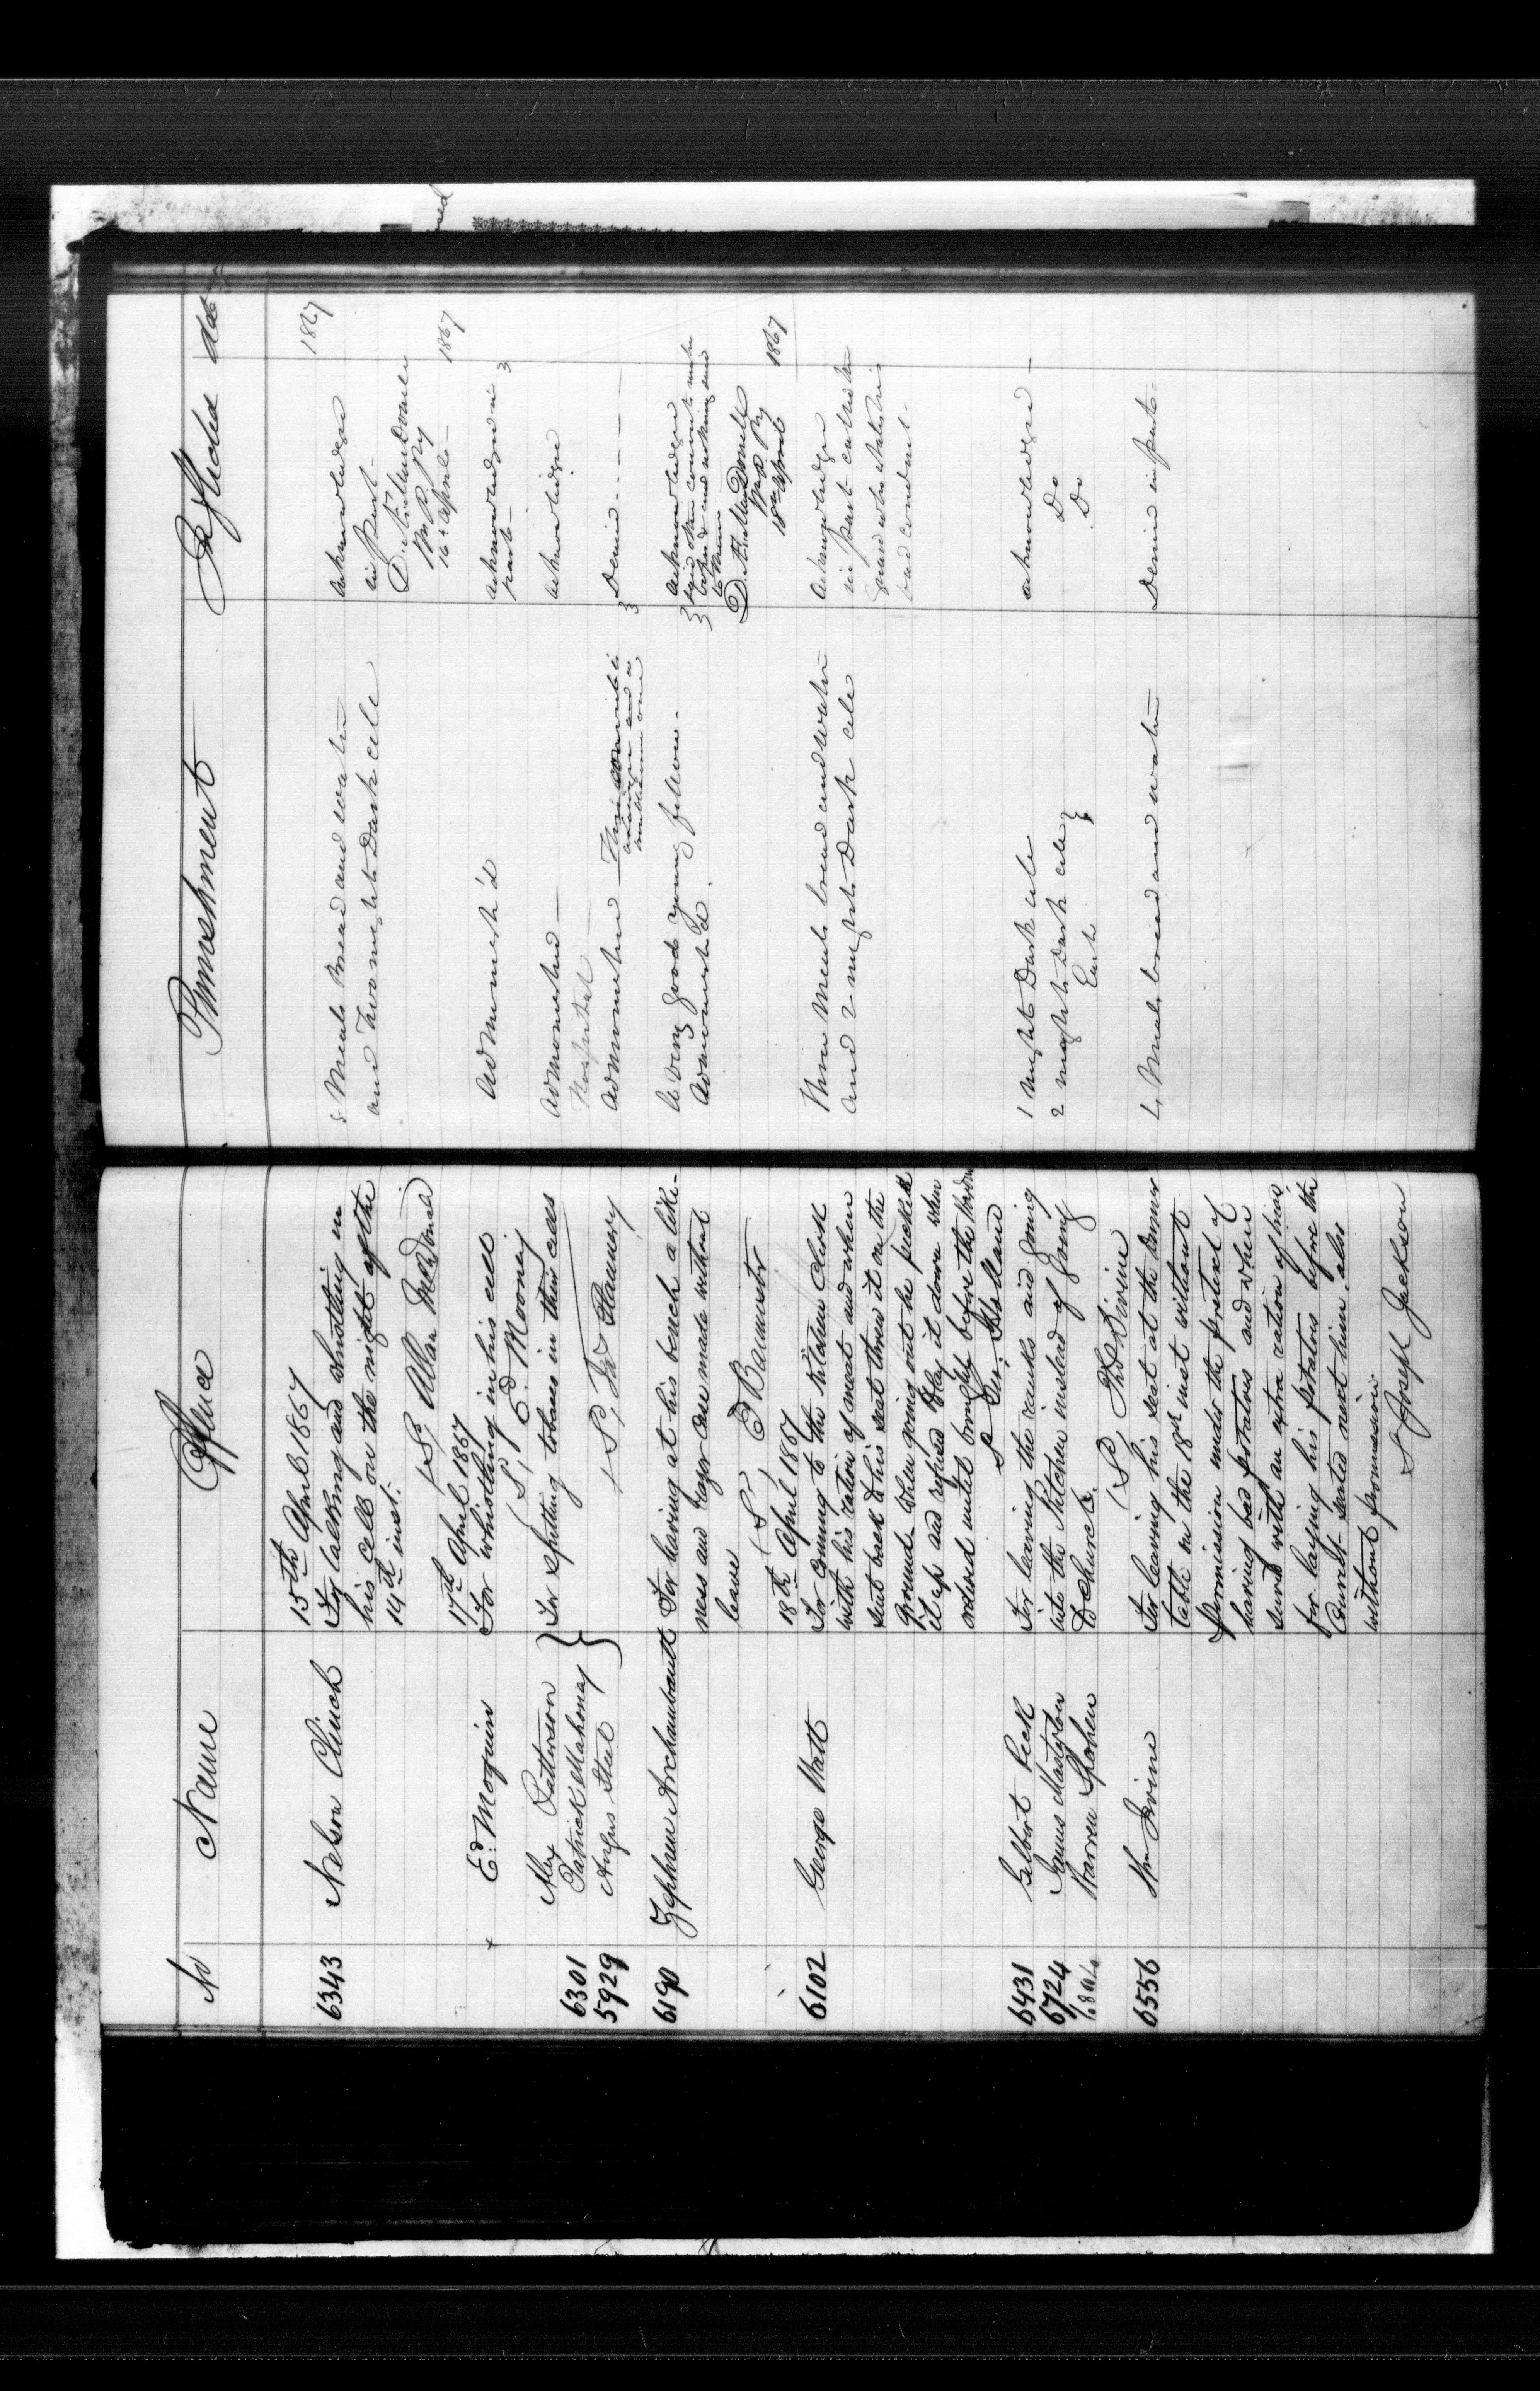 No Name Offence
15th April 1867
6343 Nelson Clinch For talking and whistling in
his cell on the night of the
14th inst.
(S, Allan McDonald
17th April 1867
+ Ed. Moquin For whistling in his cell
(S, Ed. Mooney
Alex Patterson } For Spitting tobacco in their cells
6301 Patrick Mahoney
5929 Angus Steel (S,
6190 Zephrem Archambault For having at his bench a like-
ness and razor case made without
leave
(S, E Baumaster
18th April 1867
6102 George Watt For coming to the Kitchen Clerk
with his ration of meat and when
sent back to his seat threw it on the
ground. When going out he picked
it up and refused to lay it down when
ordered until brought before the Warden
S Geo. Holland
6431 Gilbert Peck For leaving the ranks and going
6724 James into the Kitchen instead of going
Warren Spohen to Church &c.
(S, Tho Divine
6556 Wm Irvine For leaving his seat at the Dinner
table on the 18th inst without
permission under the pretext of
having bad potatoes and when
served with an extra ration of bread
for laying his potatoes before the
Convict seated next him also
without permission
S Joseph Jackson
Punishment date
1867
5 Meals Bread and water acknowledges
and Two nights Dark cell in part
16th April
1867
Admonish'd acknowledges in
part
Admonished acknowledges
Hospital
Admonished Denies
A very good young fellow. acknowledges
Admonished.
18th April 1867
Three Meals bread and water acknowledges
and 2 nights Dark cell in part
bad conduct
1 night Dark cell acknowledges
2 nights Dark cell } Do
Each Do
4 Meals bread and water Denies in part